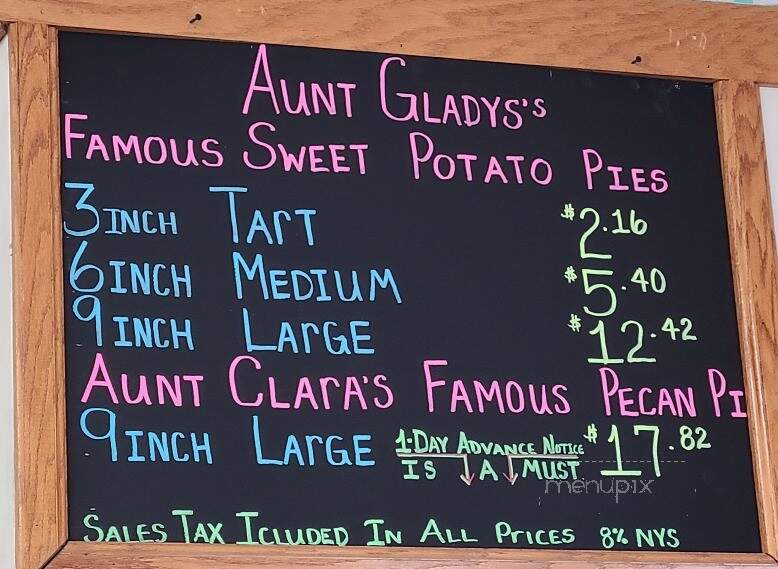 AUNT GLADYS'S
FAMOUS SWEET POTATO PIES
3INCH TART $2.16
6INCH MEDIUM $5.40
9INCH LARGE $12.42
AUNT CLARA'S FAMOUS PECAN PI
9INCH LARGE 1-DAY ADVANCE NOTICE $17.82
IS A MUST
menupix
SALES TAX ICLUDED IN ALL PRICES 8% NYS